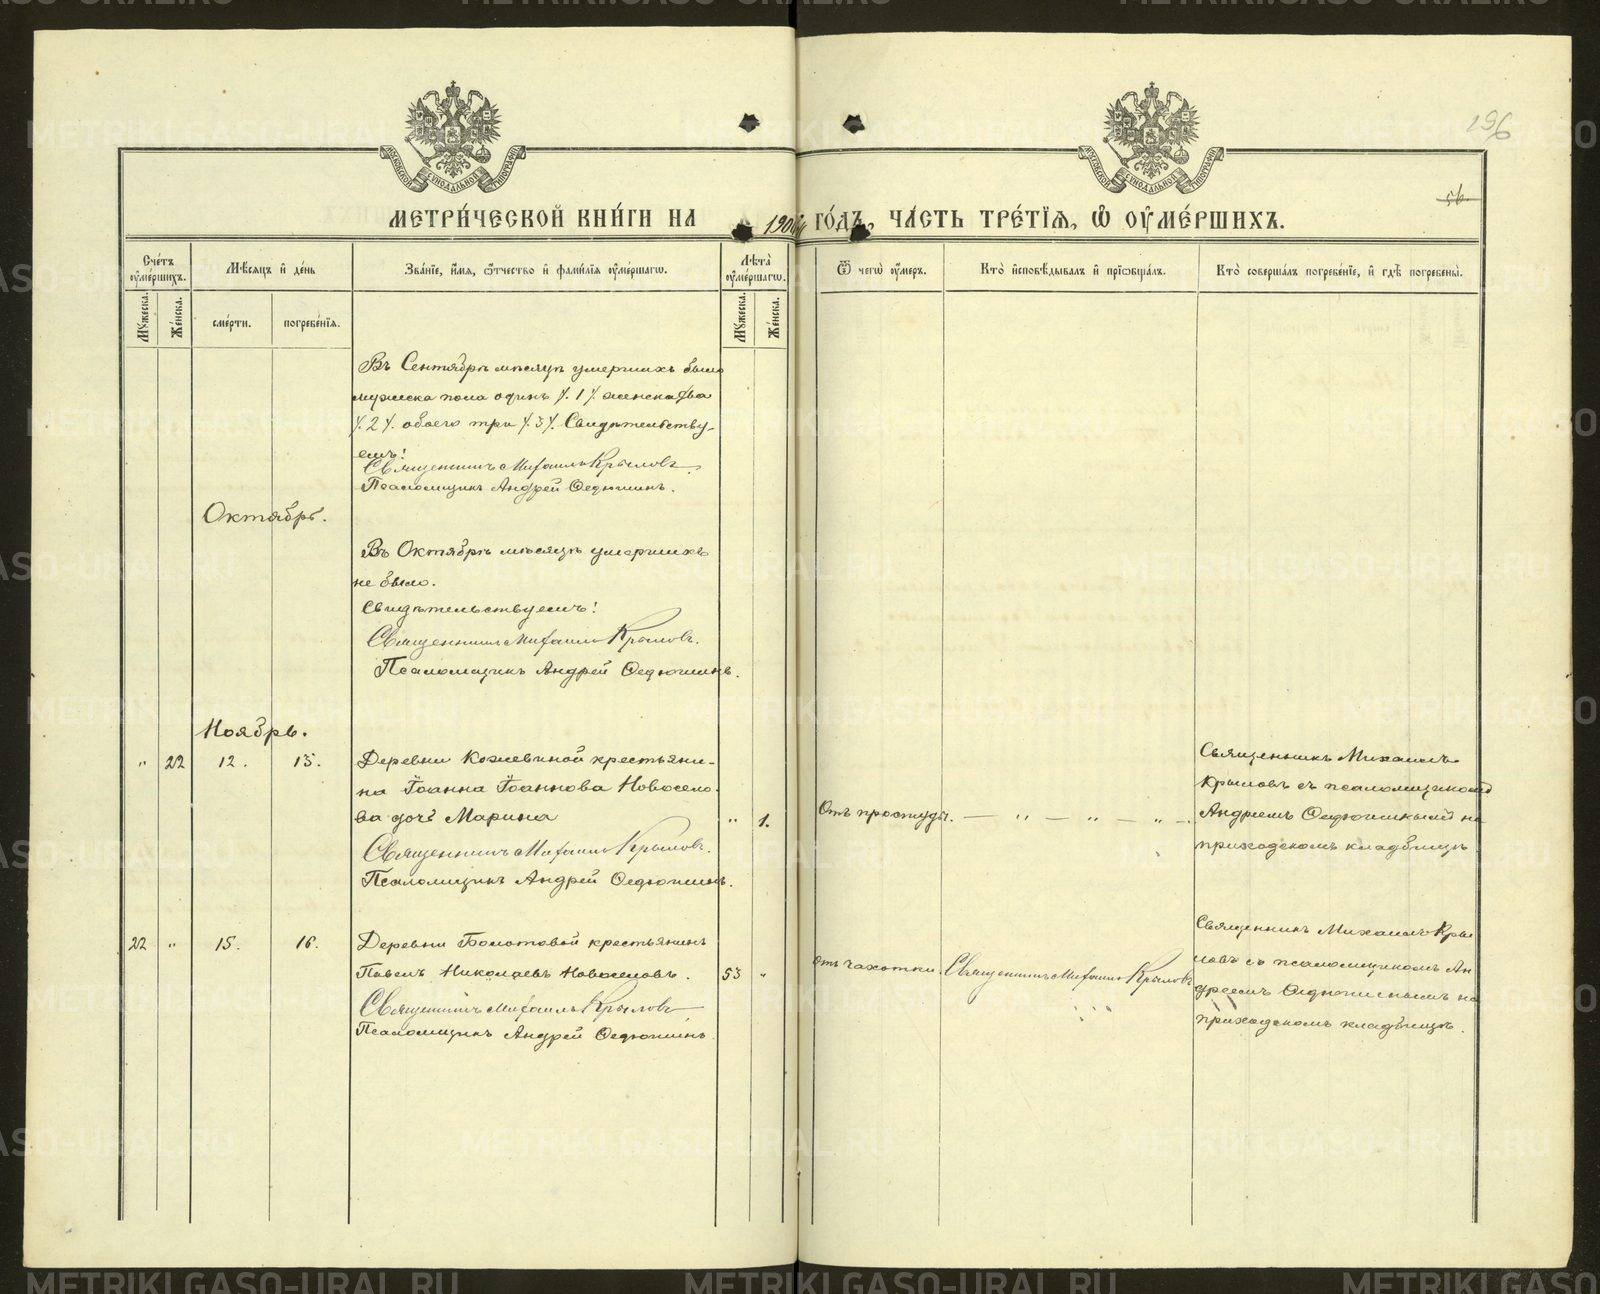 196
56.
МЕТРИ́ЧЕСКОЙ КНИ́ГИ НА 190 ГО́ДЪ, ЧА́СТЬ ТРЕ́ТІѦ, Ѽ ОУ҆МЕ́РШИХЪ.
Сче́тъ оу҆ме́ршихъ.
Мѣ́сѧцъ и҆ де́нь
Зва́нїе, и҆́мѧ, ѻ҆́тчество и҆ фами́лїѧ оу҆ме́ршагѡ.
Лѣ́та оу҆ме́ршагѡ.
Ѿ чегѡ̀ оу҆́меръ.
Кто̀ и҆сповѣ́дывалъ и҆ прїѡбща́лъ.
Кто̀ соверша́лъ погребе́нїе, и҆ гдѣ̀ погребены̀.
Мꙋ́жеска.
Же́нска.
сме́рти.
погребе́нїѧ.
Мꙋ́жеска.
Же́нска.
Въ Сентябрѣ мѣсяцѣ умершихъ было
мужеска пола одинъ /.1/. женска два
/.2/. обоего три /.3/. Свидѣтельству-
емъ!
Священникъ Михаилъ Крыловъ.
Псаломщикъ Андрей Ѳедюшинъ.
Октябрь.
Въ Октябрѣ мѣсяцѣ умершихъ
не было.
Свидѣтельствуемъ!
Священникъ Михаилъ Крыловъ.
Псаломщикъ Андрей Ѳедюшинъ.
Ноябрь.
" 22 12. 13. Деревни Кожевиной крестьяни-
на Іоанна Іоаннова Новосело-
ва дочь Марина " 1. Отъ простуды. — " — " — " —
Священникъ Михаилъ Крыловъ.
Псаломщикъ Андрей Ѳедюшинъ.
Священникъ Михаилъ
Крыловъ съ псаломщикомъ
Андреемъ Ѳедюшинымъ на
приходскомъ кладбищѣ
22 " 15. 16. Деревни Болотовой крестьянинъ
Павелъ Николаевъ Новоселовъ. 53 " Отъ чахотки. Священникъ Михаилъ Крыловъ
Священникъ Михаилъ Крыловъ
Псаломщикъ Андрей Ѳедюшинъ.
Священникъ Михаилъ Кры
ловъ съ псаломщикомъ Ан
дреемъ Ѳедюшинымъ на
приходскомъ кладбищѣ.
METRIKI.GASO-URAL.RU